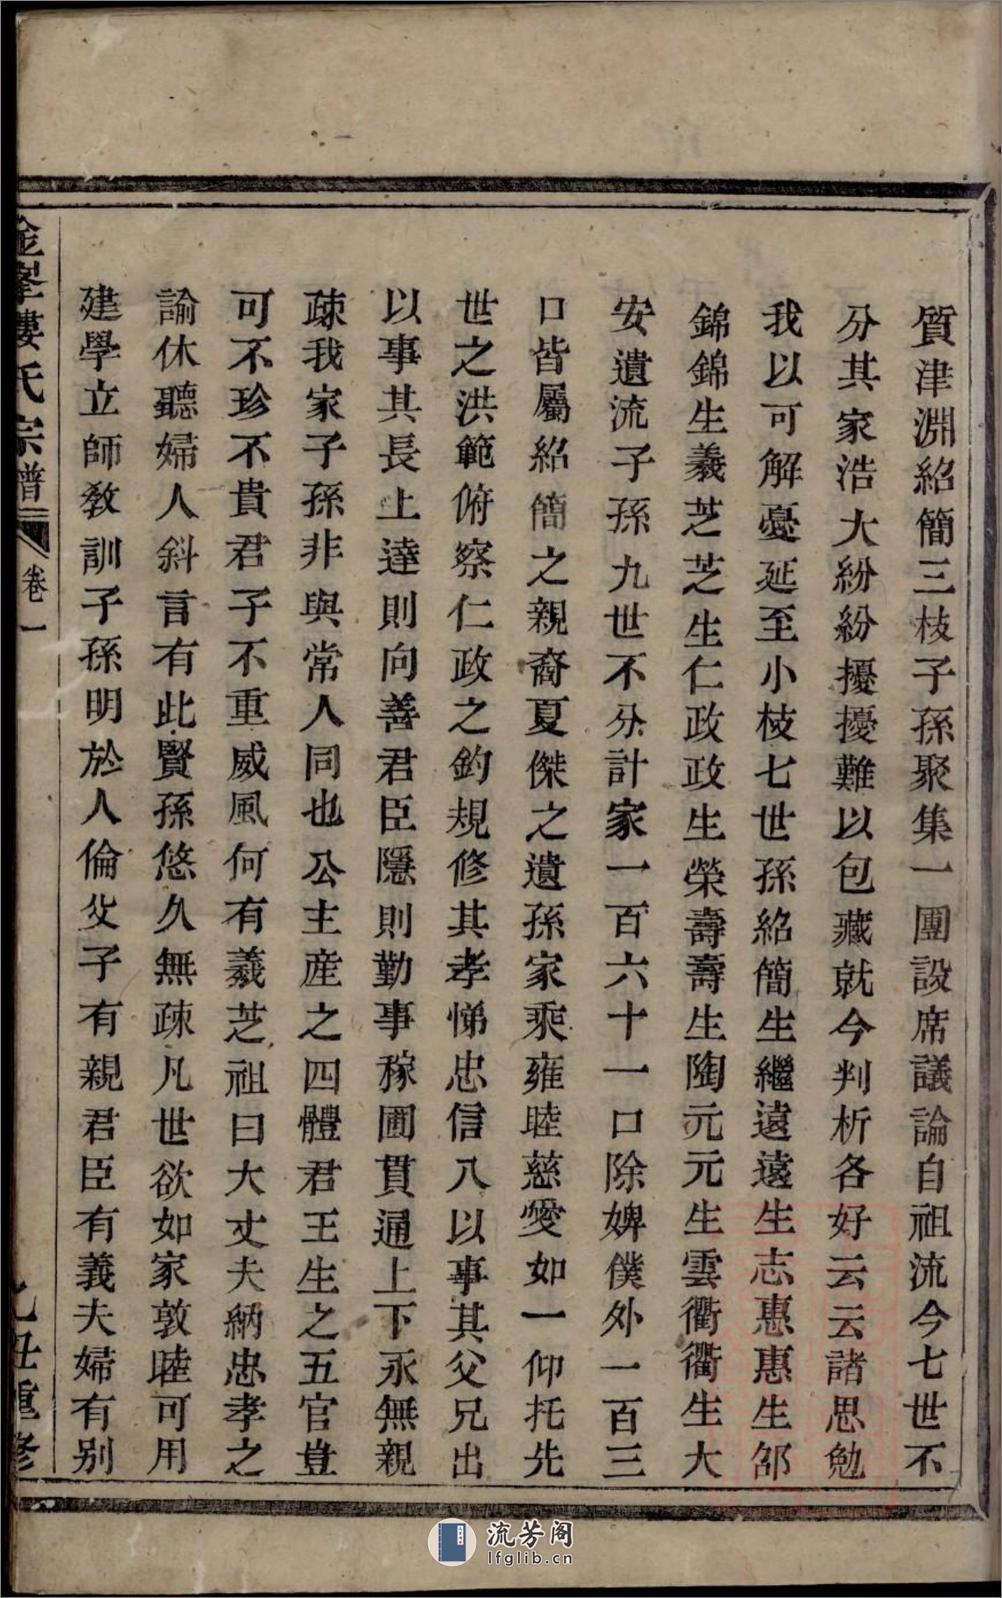 質津淵紹簡三枝子孫聚集一團設席議論自祖流今七世不
分其家浩大紛紛擾擾難以包藏就今判析各好云云諸思勉
我以可解憂延至小枝七世孫紹簡生繼遠遠生志惠惠生邵
錦錦生羲芝芝生仁政政生榮壽壽生陶元元生雲衢衢生大
安遺流子孫九世不分計家一百六十一口除婢僕外一百三
口皆屬紹簡之親裔夏傑之遺孫家乘雍睦慈愛如一仰托先
世之洪範俯察仁政之釣規修其孝悌忠信入以事其父兄出
以事其長上達則向善君臣隱則勤事稼圃貫通上下永無親
疎我家子孫非與常人同也公主産之四體君王生之五官豈
可不珍不貴君子不重威風何有羲芝祖曰大丈夫納忠孝之
諭休聽婦人斜言有此賢孫悠久無疎凡世欲如家敦睦可用
建學立師教訓子孫明於人倫父子有親君臣有義夫婦有别
金峯婁氏宗譜 卷一 乙丑重修
流芳阁
lfglib.cn